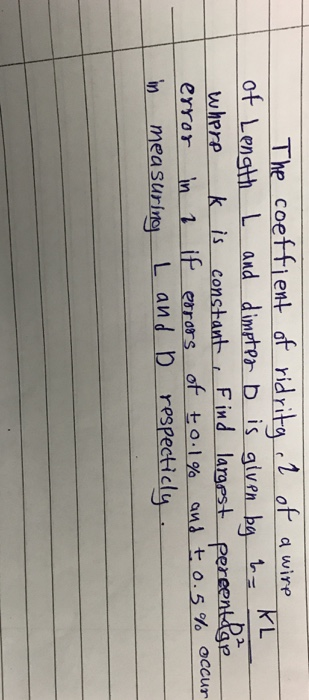 The coeffjent of ridrity, 2 of a wire
of Length L and dimpter D is given by 2 = KL / D²
where k is constant, Find largest percentage
error in 2 if errors of ±0.1% and ±0.5% occur
in measuring L and D respecticly.